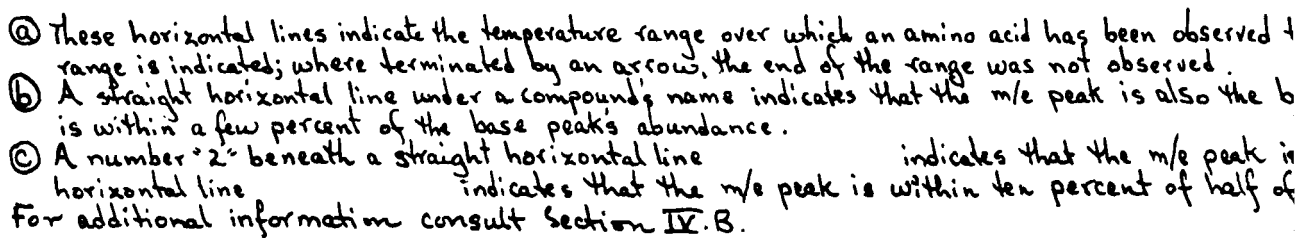 ⓐ These horizontal lines indicate the temperature range over which an amino acid has been observed t
range is indicated; where terminated by an arrow, the end of the range was not observed.
ⓑ A straight horizontal line under a compound's name indicates that the m/e peak is also the b
is within a few percent of the base peak's abundance.
ⓒ A number "2" beneath a straight horizontal line indicates that the m/e peak i
horizontal line indicates that the m/e peak is within ten percent of half of
For additional information consult Section IV.B.